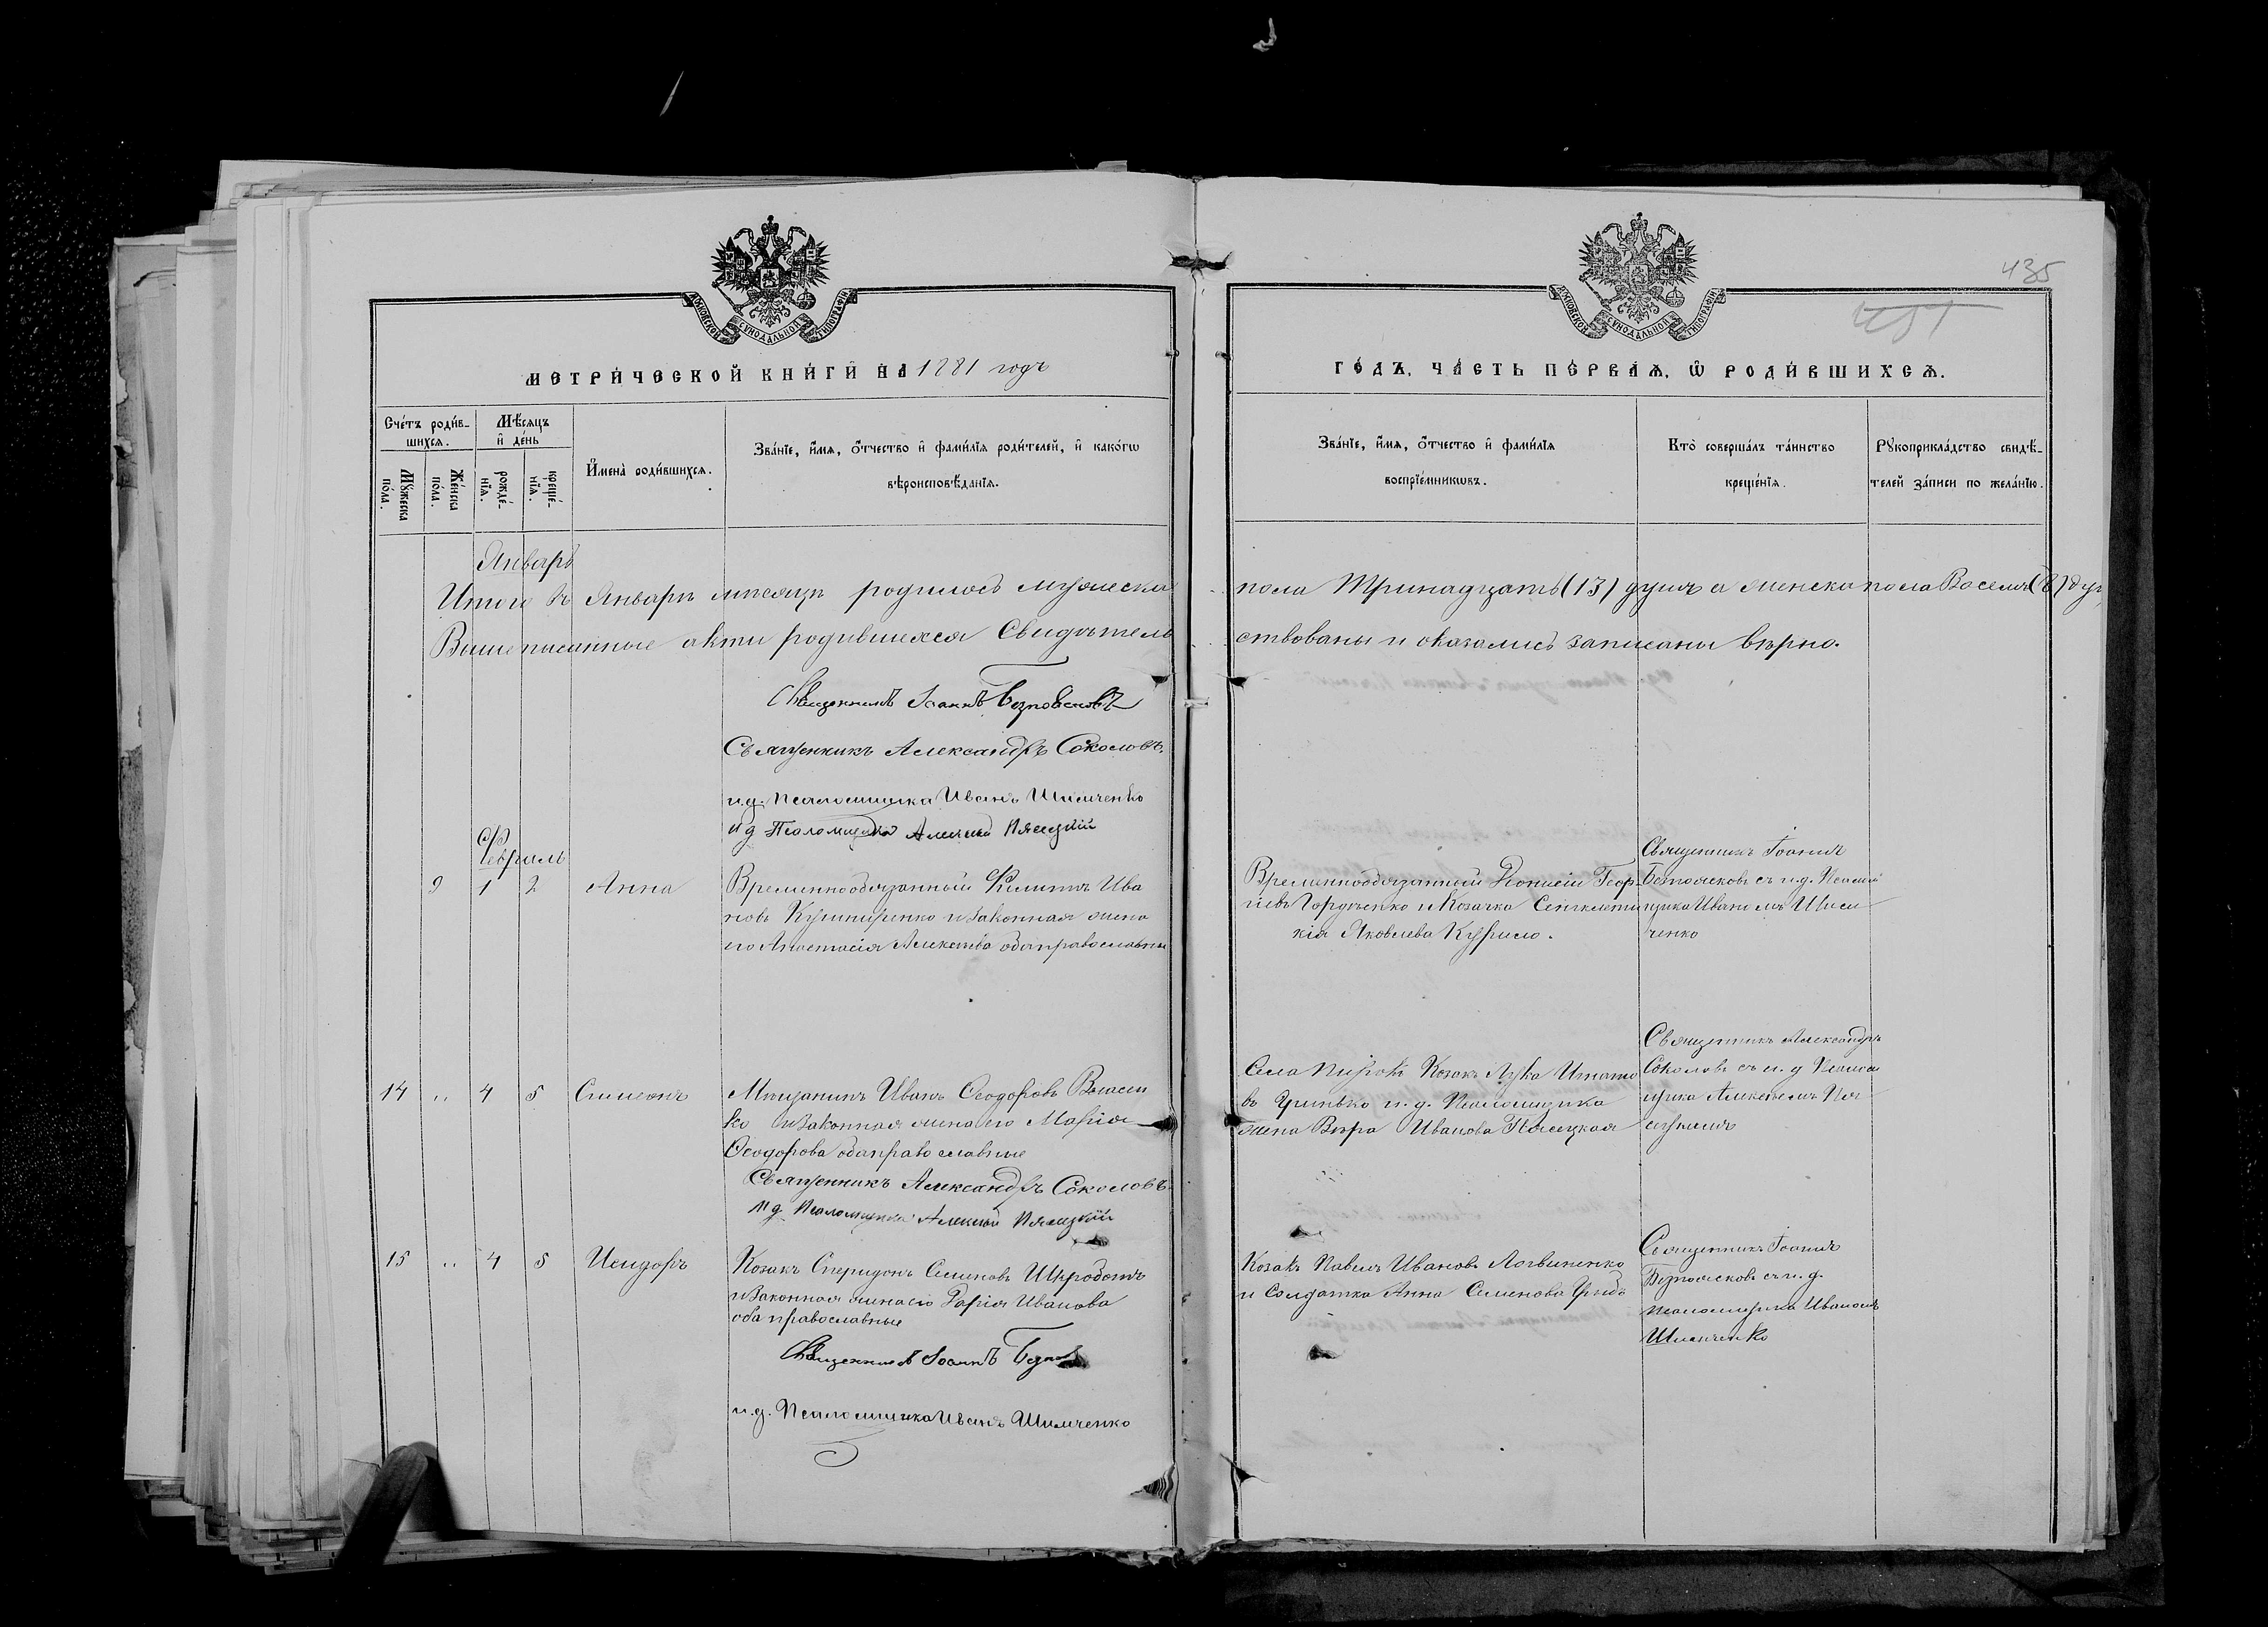 МОСКОВСКОЙ СѴНОДАЛЬНОЙ ТИПОГРАФІИ
МЕТРИ́ЧЕСКОЙ КНИ́ГИ НА 1881 годъ
Сче́тъ роди́в-
шихсѧ.
Мѣ́сѧцъ
и҆ де́нь
Мꙋ́жеска
по́ла.
Же́нска
по́ла.
рожде́-
нїѧ.
креще́-
нїѧ.
И҆мена̀ роди́вшихсѧ.
Зва́нїе, и҆́мѧ, ѻ҆́тчество и҆ фами́лїѧ роди́телей, и҆ како́гѡ
вѣроисповѣ́данїѧ.
Январь
Итого въ Январѣ мѣсяцѣ родилось мужеска
Вышеписанные акты родившихся Свидѣтель
Священникъ Іоаннъ
Священникъ Александръ Соколовъ
и.д. Псаломщика Иванъ Шимченко
и д Псаломщика Алексѣй Пясецкій
Февраль
9 1 2 Анна Временнообязанный Филиппъ Ива
новъ и законная жена
его Анастасія Алексѣева оба православны
14 „ 4 5 Симеонъ Мѣщанинъ Иванъ Ѳеодоровъ Власен
ко и законная жена его Марія
Ѳеодорова оба православные
Священникъ Александръ Соколовъ
И д Псаломщика Алексѣй Пясецкій
15 „ 4 5 Исидоръ Козакъ Спиридонъ Семеновъ
и законная жена его Дарія Иванова
оба православные
Священникъ Іоаннъ
и.д. Псаломщика Иванъ Шимченко
435
МОСКОВСКОЙ СѴНОДАЛЬНОЙ ТИПОГРАФІИ
ГО́ДЪ, ЧА́СТЬ ПЕ́РВАѦ, Ѡ҆ РОДИ́ВШИХСѦ.
Зва́нїе, и҆́мѧ, ѻ҆́тчество и҆ фами́лїѧ
воспрїе́мникѡвъ.
Кто̀ соверша́лъ та́инство
креще́нїѧ.
Рꙋкоприкла́дство свидѣ́-
телей за́писи по жела́нїю.
пола Тринадцать (13) душъ а женска пола Восемь (8) душ
ствованы и оказались записаны вѣрно.
Временнообязанный Діонисій Геор-
гіевъ Гордѣенко и Козачка Сенклети
кія Яковлева Курило.
Священникъ Іоаннъ
съ и.д. Псалом
щика Иваномъ Шим
ченко
Села Козакъ Лука Игнато
въ Гринько и.д. Псаломщика
жена Вѣра Иванова Пясецкая
Священникъ Александръ
Соколовъ съ и.д Псалом
щика Алексѣемъ Пя
сецкимъ
Козакъ Павелъ Ивановъ Логвиненко
и Солдатка Анна Семенова
Священникъ Іоаннъ
съ и.д.
псаломщика Иваномъ
Шимченко